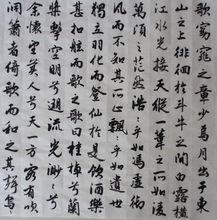 歌窈窕之章少焉月出于東
山之上徘徊於斗牛之間白露橫
江水光接天縱一葦之所如凌
萬頃之茫然浩浩乎如馮虛御
風而不知其所止飄飄乎如遺世
獨立羽化而登仙於是飲酒樂
甚扣舷而歌之歌曰桂棹兮蘭
槳擊空明兮泝流光渺渺兮
余懷望美人兮天一方客有吹
洞簫者倚歌而和之其聲嗚